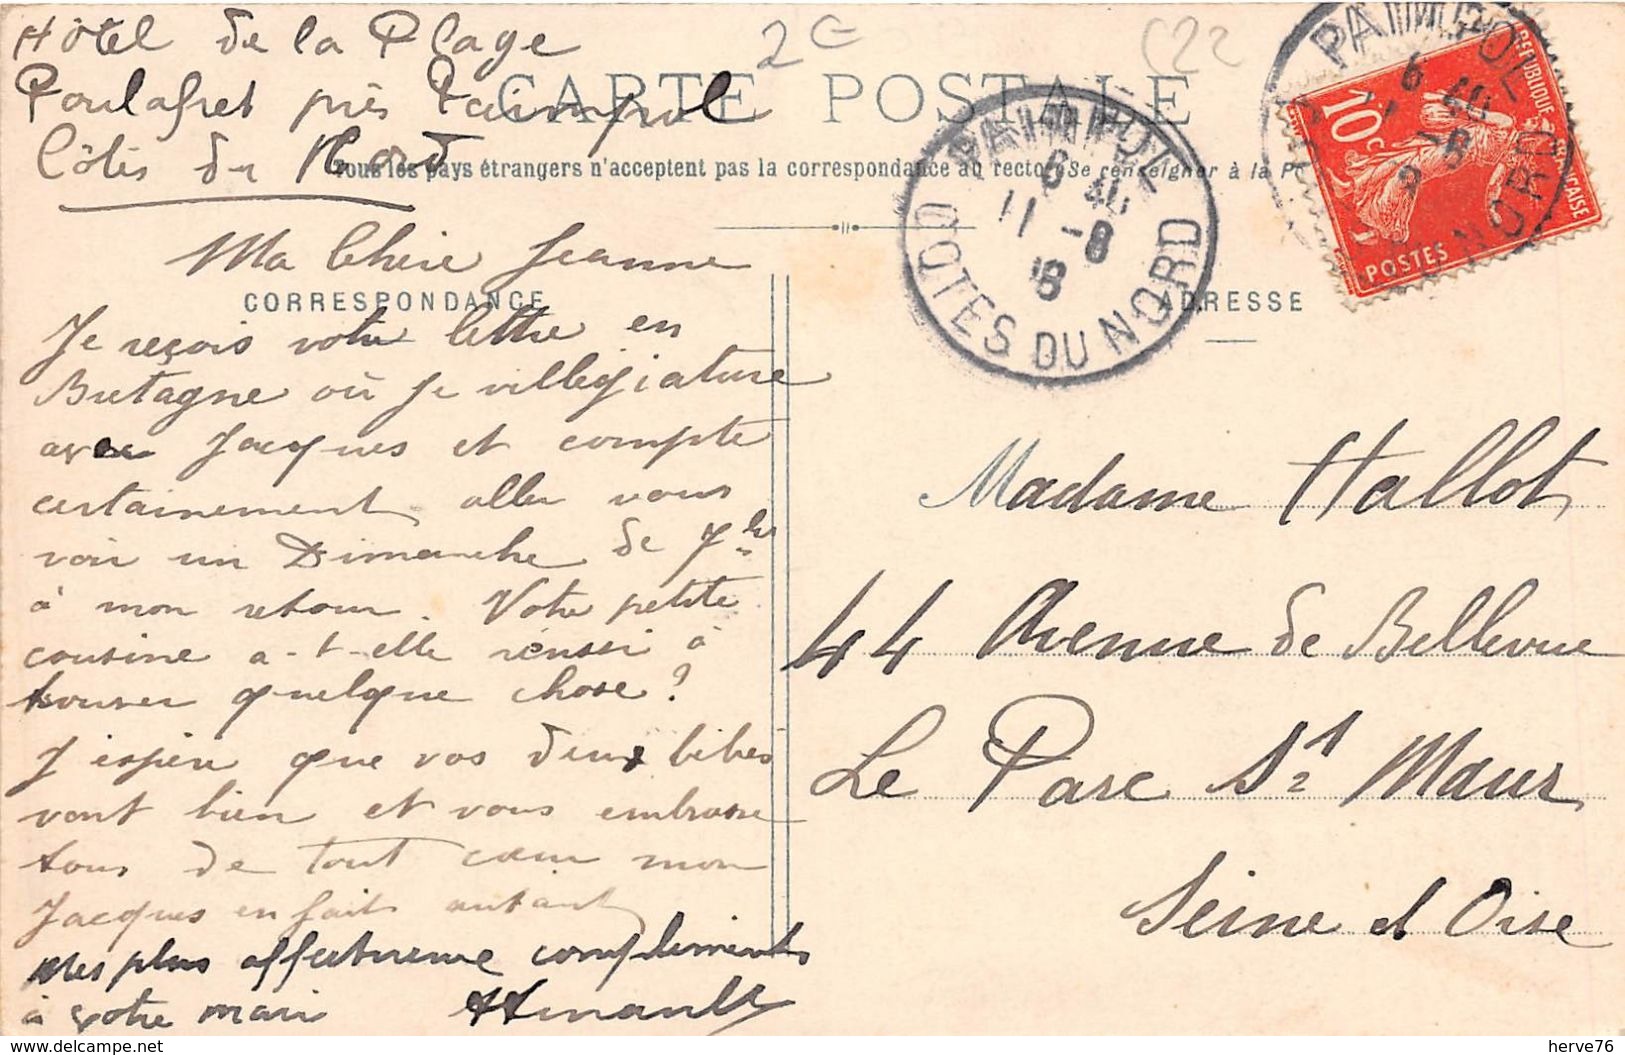 Hôtel de la Plage
Poulafret près Paimpol
Côtes du Nord
2€
C22
CARTE POSTALE
Tous les pays étrangers n'acceptent pas la correspondance au recto (Se renseigner à la Po
PAIMPOL
6 40
11 -8
8
COTES DU NORD
PAIMPOL
6 40
-8
DU NORD
REPUBLIQUE FRANÇAISE
10c
POSTES
Ma Chère Jeanne
CORRESPONDANCE
Je reçois votre lettre en
Bretagne où je villégiature
avec Jacques et compte
certainement aller vous
voir un Dimanche de 7bre
à mon retour. Votre petite
cousine a-t-elle réussi à
trouver quelque chose?
J'espère que vos deux bibes
vont bien et vous embrasse
tous de tout cœur mon
Jacques en fait autant
Mes plus affectueux compliments
à votre mari
ADRESSE
Madame Hallot
44 Avenue de Bellevue
Le Parc St Maur
Seine et Oise
delcampe.net
herve76